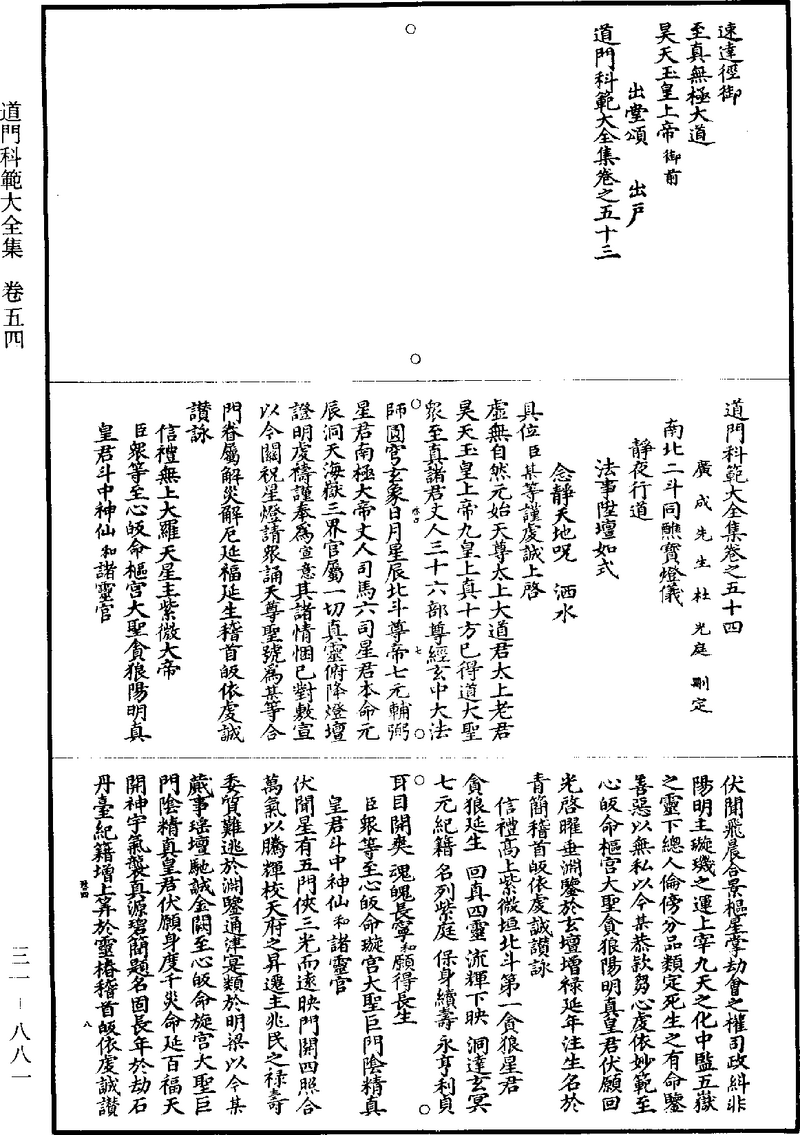 道門科範大全集　卷五四
三一－八八一
速達徑御
至真無極大道
昊天玉皇上帝御前
出堂頌　出戶
道門科範大全集卷之五十三
道門科範大全集卷之五十四
廣成先生杜光庭刪定
南北二斗同醮寶燈儀
靜夜行道
法事陞壇如式
念靜天地呪　洒水
具位臣某等謹虔誠上啓
虛無自然元始天尊太上大道君太上老君
昊天玉皇上帝九皇上真十方已得道大聖
衆至真諸君丈人三十六部尊經玄中大法
師圓官玄象日月星辰北斗尊帝七元輔弼
星君南極大帝丈人司馬六司星君本命元
辰洞天海嶽三界官屬一切真靈俯降燈壇
證明虔禱謹奉為宣意其諸情悃已對敷宣
以今關祝星燈請衆誦天尊聖號為某等合
門眷屬解災解厄延福延生稽首皈依虔誠
讚詠
信禮無上大羅天星主紫微大帝
臣衆等至心皈命樞宮大聖貪狼陽明真
皇君斗中神仙和諸靈官
伏聞飛晨合景樞星掌劫會之權司政糾非
陽明主璇璣之運上宰九天之化中監五嶽
之靈下總人倫傍分品類定死生之有命鑒
善惡以無私以今某恭欵芻心虔依妙範至
心皈命樞宮大聖貪狼陽明真皇君伏願回
光啓曜垂淵鑒於玄壇增禄延年注生名於
青簡稽首皈依虔誠讚詠
信禮高上紫微垣北斗第一貪狼星君
貪狼延生　回真四靈　流輝下映　洞達玄冥
七元紀籍　名列紫庭　保身續壽　永亨利貞
耳目開爽　魂魄長寧和願得長生
臣衆等至心皈命璇宮大聖巨門陰精真
皇君斗中神仙和諸靈官
伏聞星有五門俠三光而遂映門開四照合
萬氣以騰輝校天府之昇遷主兆民之禄壽
委質難逃於淵鑒通津寔類於明梁以今某
蕆事瑶壇馳誠金闕至心皈命旋宮大聖巨
門陰精真皇君伏願身度千災命延百福天
開神宇氣襲真源碧簡題名固長年於劫石
丹臺紀籍增上筭於靈椿稽首皈依虔誠讚